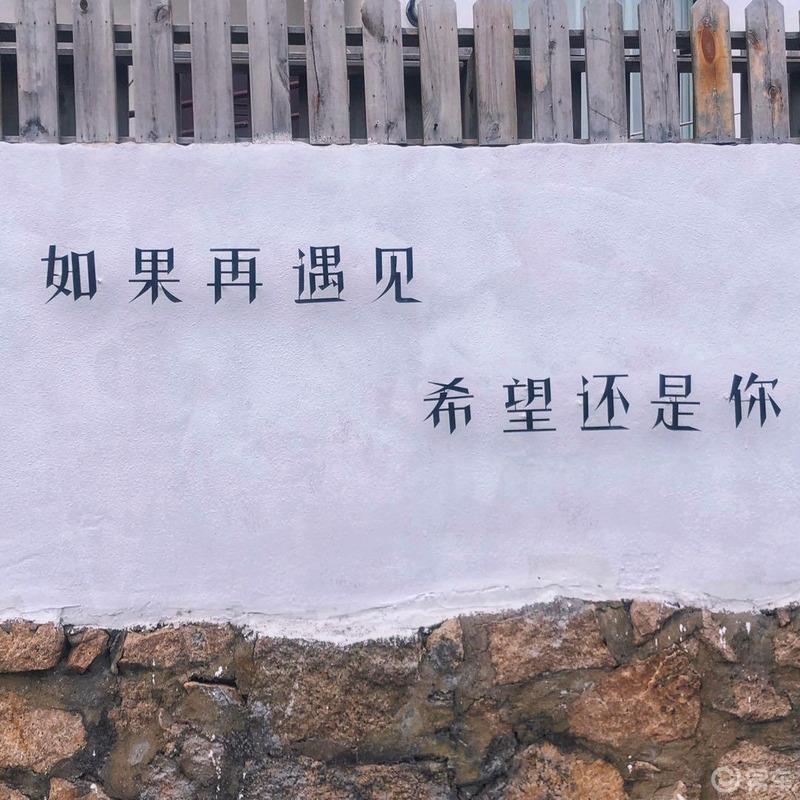 如果再遇见
希望还是你
易车